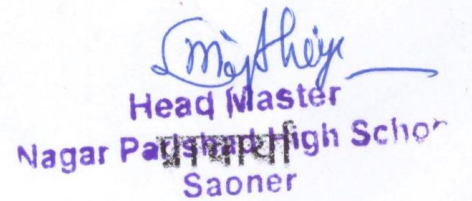 Head Master
Nagar Parishad High Schoo
प्राचार्या
Saoner